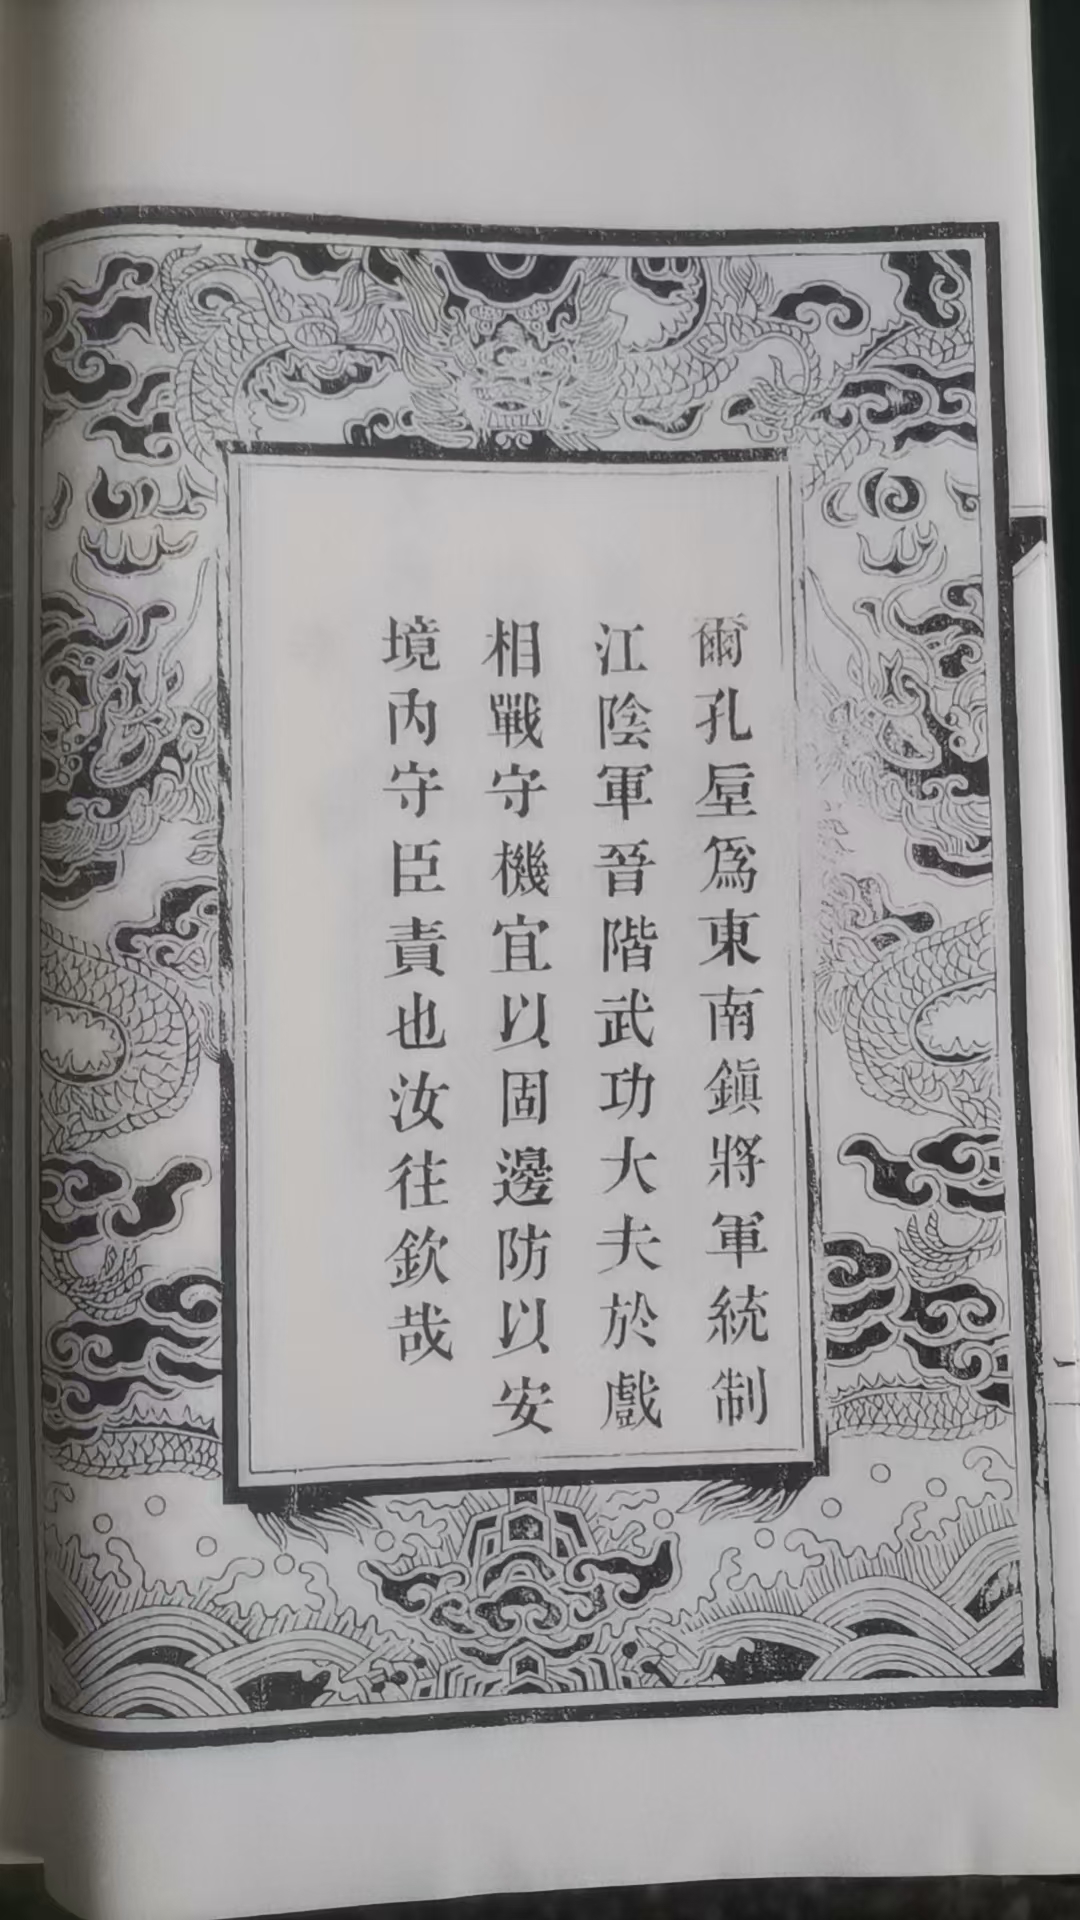 爾孔垕爲東南鎭將軍統制
江陰軍晉階武功大夫於戲
相戰守機宜以固邊防以安
境內守臣責也汝往欽哉